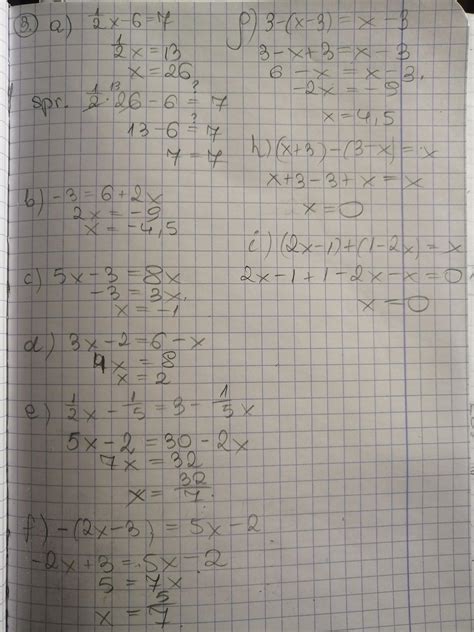 3. a) 1/2x - 6 = 7
1/2x = 13
x = 26
spr. 1/2 · 26 - 6 ?= 7
13 - 6 ?= 7
7 = 7
b) -3 = 6 + 2x
2x = -9
x = -4,5
c) 5x - 3 = 8x
-3 = 3x
x = -1
d) 3x - 2 = 6 - x
4x = 8
x = 2
e) 1/2x - 1/5 = 3 - 1/5x
5x - 2 = 30 - 2x
7x = 32
x = 32/7
f) -(2x - 3) = 5x - 2
-2x + 3 = 5x - 2
5 = 7x
x = 5/7
g) 3 - (x - 3) = x - 3
3 - x + 3 = x - 3
6 - x = x - 3
-2x = -9
x = 4,5
h) (x + 3) - (3 - x) = x
x + 3 - 3 + x = x
x = 0
i) (2x - 1) + (1 - 2x) = x
2x - 1 + 1 - 2x - x = 0
x = 0